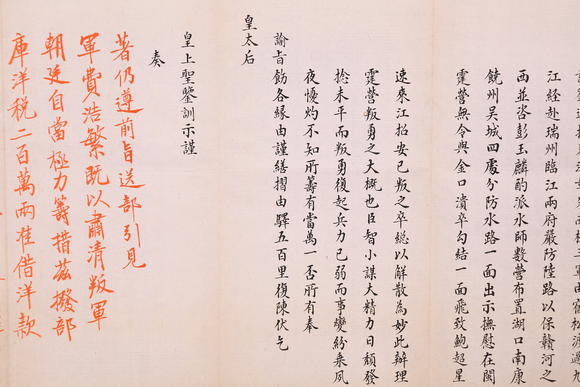 江經赴瑞州臨江兩府嚴防陸路以保贛河之
西並咨彭玉麟酌派水師數營布置湖口南康
饒州吳城四處分防水路一面出示撫慰在關
霆營無令與金口潰卒勾結一面飛致鮑超星
速來江招安已叛之卒總以解散為妙此辦理
霆營叛勇之大概也臣智小謀大精力日頹發
捻未平而叛勇復起兵力已弱而事變紛乘夙
夜憂灼不知所籌有當萬一否所有奉
諭旨飭各緣由謹繕摺由驛五百里復陳伏乞
皇太后
皇上聖鑒訓示謹
奏
著仍遵前旨送部引見
軍費浩繁既以肅清叛軍
朝廷自當極力籌措茲撥部
庫洋稅二百萬兩准借洋款